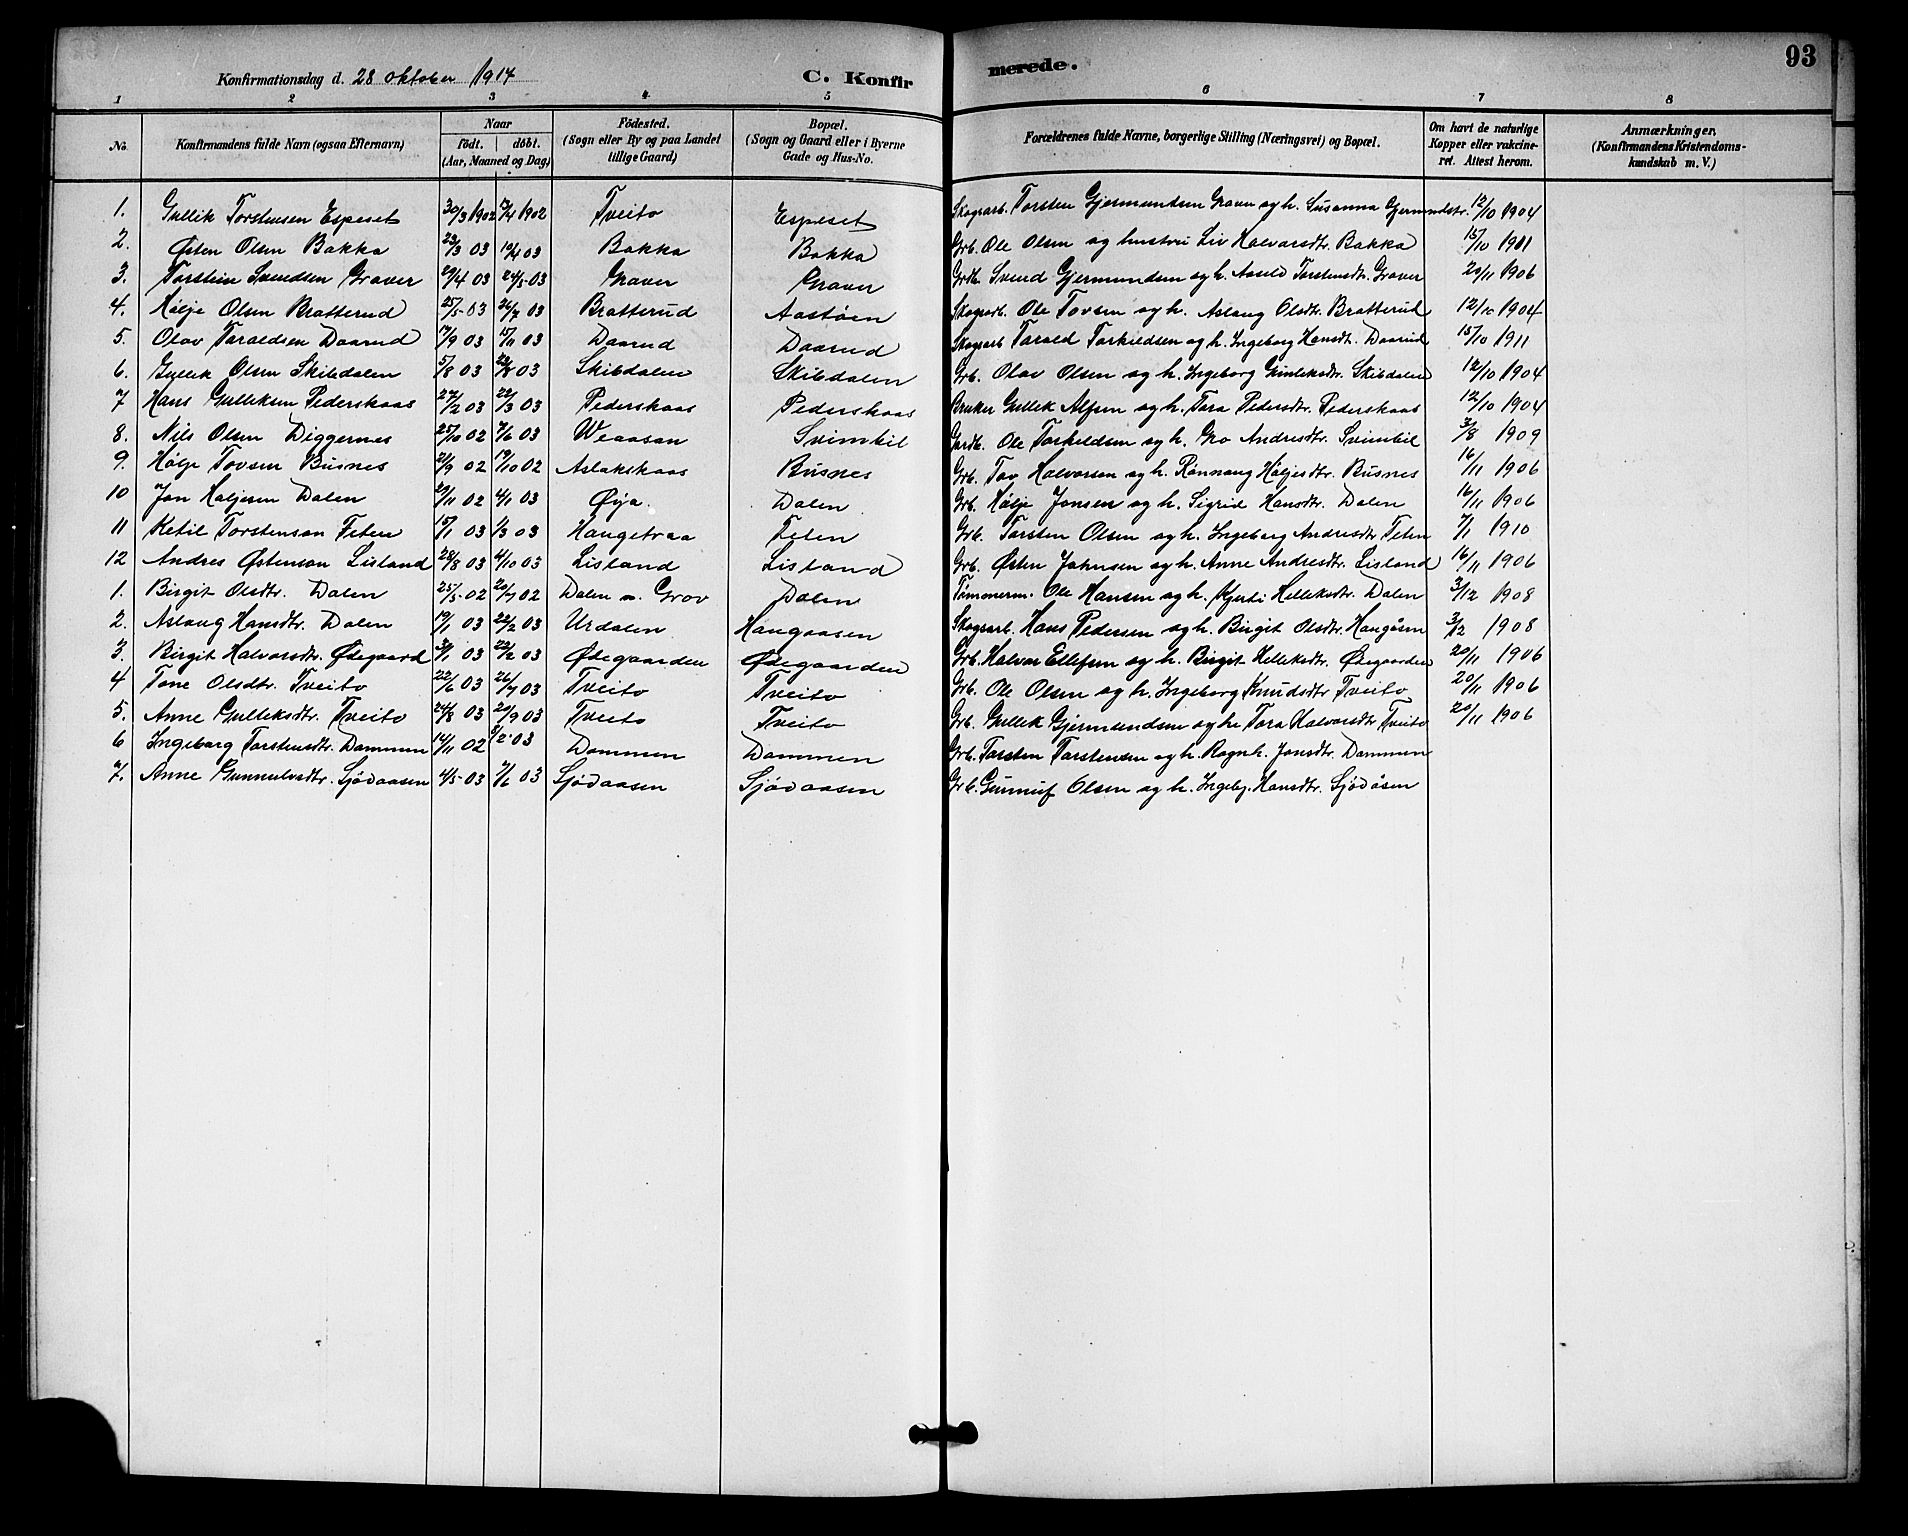 93
Konfirmationsdag d. 28 oktober 1917 C. Konfir merede.
1 2 3 4 5 6 7 8
No. Konfirmandens fulde Navn (ogsaa Efternavn) Naar födt. döbt. (Aar, Maaned og Dag) Födested. (Sogn eller By og paa Landet tillige Gaard) Bopæl. (Sogn og Gaard eller i Byerne Gade og Hus-No. Forældrenes fulde Navne, borgerlige Stilling (Næringsvei) og Bopæl. Om havt de naturlige Kopper eller vakcineret. Attest herom. Anmærkninger. (Konfirmandens Kristendomskundskab m. V.)
1. Gullik Torstensen Espeset 30/3 1902 /4 1902 Tveito Espeset Skogsarb. Torsten Gjermundsen Graver og h. Susanna Gjermundsdtr. 12/10 1904
2. Østen Olsen Bakka 23/3 03 19/4 03 Bakka Bakka Grb. Ole Olsen og hustru Liv Halvarsdtr. Bakka 15/10 1911
3. Torstein Svendsen Graver 29/4 03 24/5 03 Graver Graver Grdb. Svend Gjermundsen og h. Aaslo Torstensdtr. Graver 20/11 1906
4. Hølje Olsen Bratterud 25/5 03 26/7 03 Bratterud Aastøen Skogsarb. Ole Tovsen og h. Aslaug Olsdtr. Bratterud 12/10 1904
5. Olav Taraldsen Daarud 17/9 03 15/11 03 Daarud Daarud Skogsarb Tarald Torkildsen og h. Ingeborg Hansdt. Daarud 15/10 1911
6. Gullik Olsen Skibdalen 5/8 03 23/8 03 Skibdalen Skibdalen Grb. Olav Olsen og h. Ingeborg Gunleksdtr. Skibdalen 12/10 1904
7 Hans Gulleksen Pederskaas 27/2 03 22/3 03 Pederskaas Pederskaas Bruker Gullek Alfsen og h. Tora Pedersdtr. Pederskaas 12/10 1904
8. Nils Olsen Diggernes 25/10 02 7/6 03 Weaasan Svimbil Gardb. Ole Torkildsen og h. Gro Andresdtr. Svimbil 3/8 1909
9. Hølje Tovsen Busnes 21/9 02 19/10 02 Aslakskaas Busnes Grb. Tov Halvorson og h. Rønnaug Høljesdtr. Busnes 16/11 1906
10 Jon Høljesen Dalen 29/11 02 4/1 03 Øya Dalen Grb. Hølje Jonsen og h. Sigrid Hansdtr. Dalen 16/11 1906
11 Ketil Torstenson Feten 15/1 03 1/3 03 Haugetraa Feten Grb. Torsten Olsen og h. Ingeborg Andresdtr Feten 7/1 1910
12 Andres Østenson Lisland 28/8 03 4/10 03 Lisland Lisland Grb. Østen Johnsen og h. Anne Andresdtr. Lisland 16/11 1906
1. Birgit Olsdtr. Dalen 25/5 02 20/7 02 Dalen n. Grov Dalen Tømmerm. Ole Hansen og h. Kjersti Helleksdtr. Dalen 3/12 1908
2. Aslaug Hansdtr. Dalen 19/1 03 22/2 03 Urdalen Haugaasen Skogsarb. Hans Pedersen og h. Birgit Olsdtr. Haugåsen 3/12 1908
3. Birgit Halvorsdtr. Ødegaard 31/1 03 22/2 03 Ødegaarden Ødegaarden Grb. Halvor Ellefsen og h. Birgit Helleksdtr. Ødegaarden 20/11 1906
4 Tone Olsdtr. Tveito 22/6 03 26/7 03 Tveito Tveito Grb. Ole Olsen og h. Ingeborg Knudsdtr Tveito 20/11 1906
5. Anne Gulleksdtr. Tveito 24/8 03 20/9 03 Tveito Tveito Grb. Gullek Gjermundsen og h. Tora Halvorsdtr Tveito 20/11 1906
6 Ingeborg Torstensdtr. Dammen 14/11 02 /2 03 Dammen Dammen Grb. Torsten Torstensen og h. Ragnh. Jonsdtr. Dammen
7. Anne Gunnulvsdtr. Sjödaasen 4/5 03 7/6 03 Sjödaasen Sjödaasen Grb. Gunnuf Olsen og h. Ingebj. Hansdtr. Sjödåsen